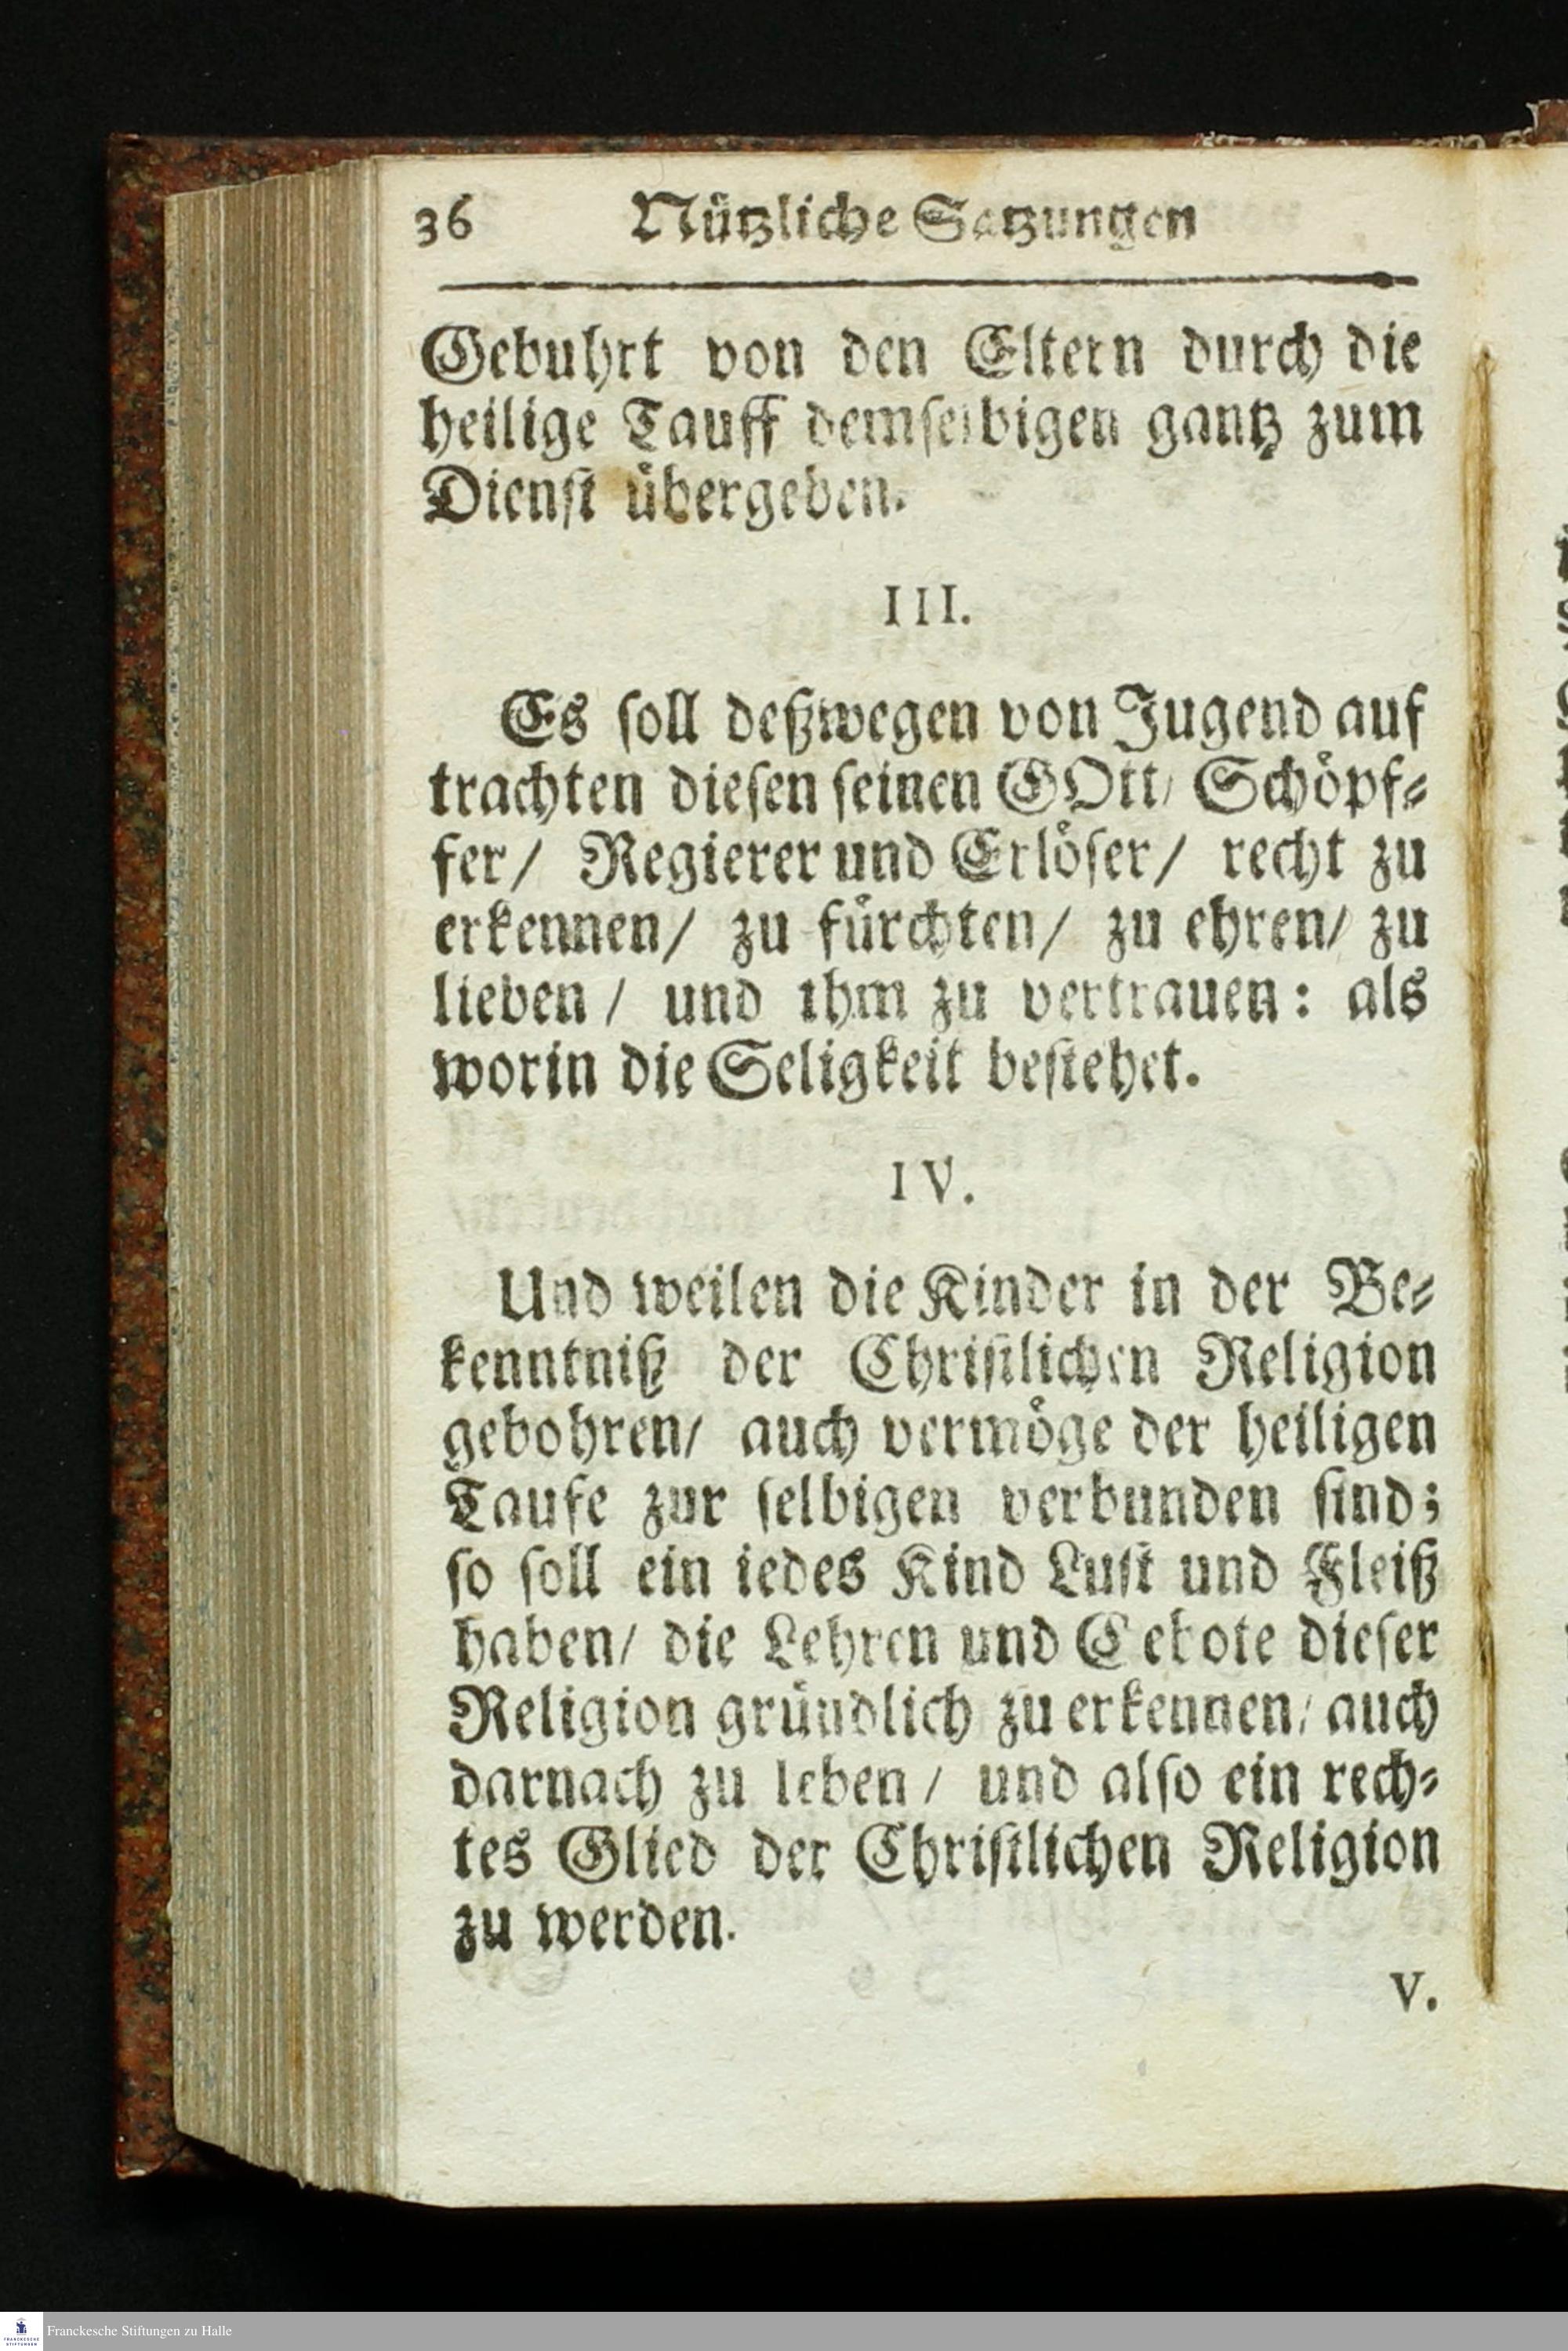 36 Nützliche Satzungen
Gebuhrt von den Eltern durch die
heilige Tauff demselbigen gantz zum
Dienst übergeben.
III.
Es soll deßwegen von Jugend auf
trachten diesen seinen GOtt/ Schöpf-
fer/ Regierer und Erlöser/ recht zu
erkennen/ zu fürchten/ zu ehren/ zu
lieben / und ihm zu vertrauen: als
worin die Seligkeit bestehet.
IV.
Und weilen die Kinder in der Be-
kenntniß der Christlichen Religion
gebohren/ auch vermöge der heiligen
Taufe zur selbigen verbunden sind;
so soll ein iedes Kind Lust und Fleiß
haben/ die Lehren und Gebote dieser
Religion gründlich zu erkennen/ auch
darnach zu leben / und also ein rech-
tes Glied der Christlichen Religion
zu werden.
V.
Franckesche Stiftungen zu Halle
FRANCKESCHE
STIFTUNGEN